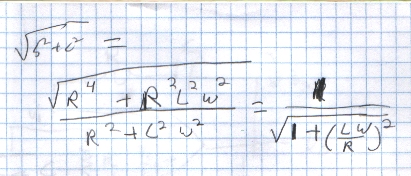 √(b²+c²) =
√(R⁴ + R²L²w²) / (R² + L²w²) = 1 / √(1 + (Lw/R)²)